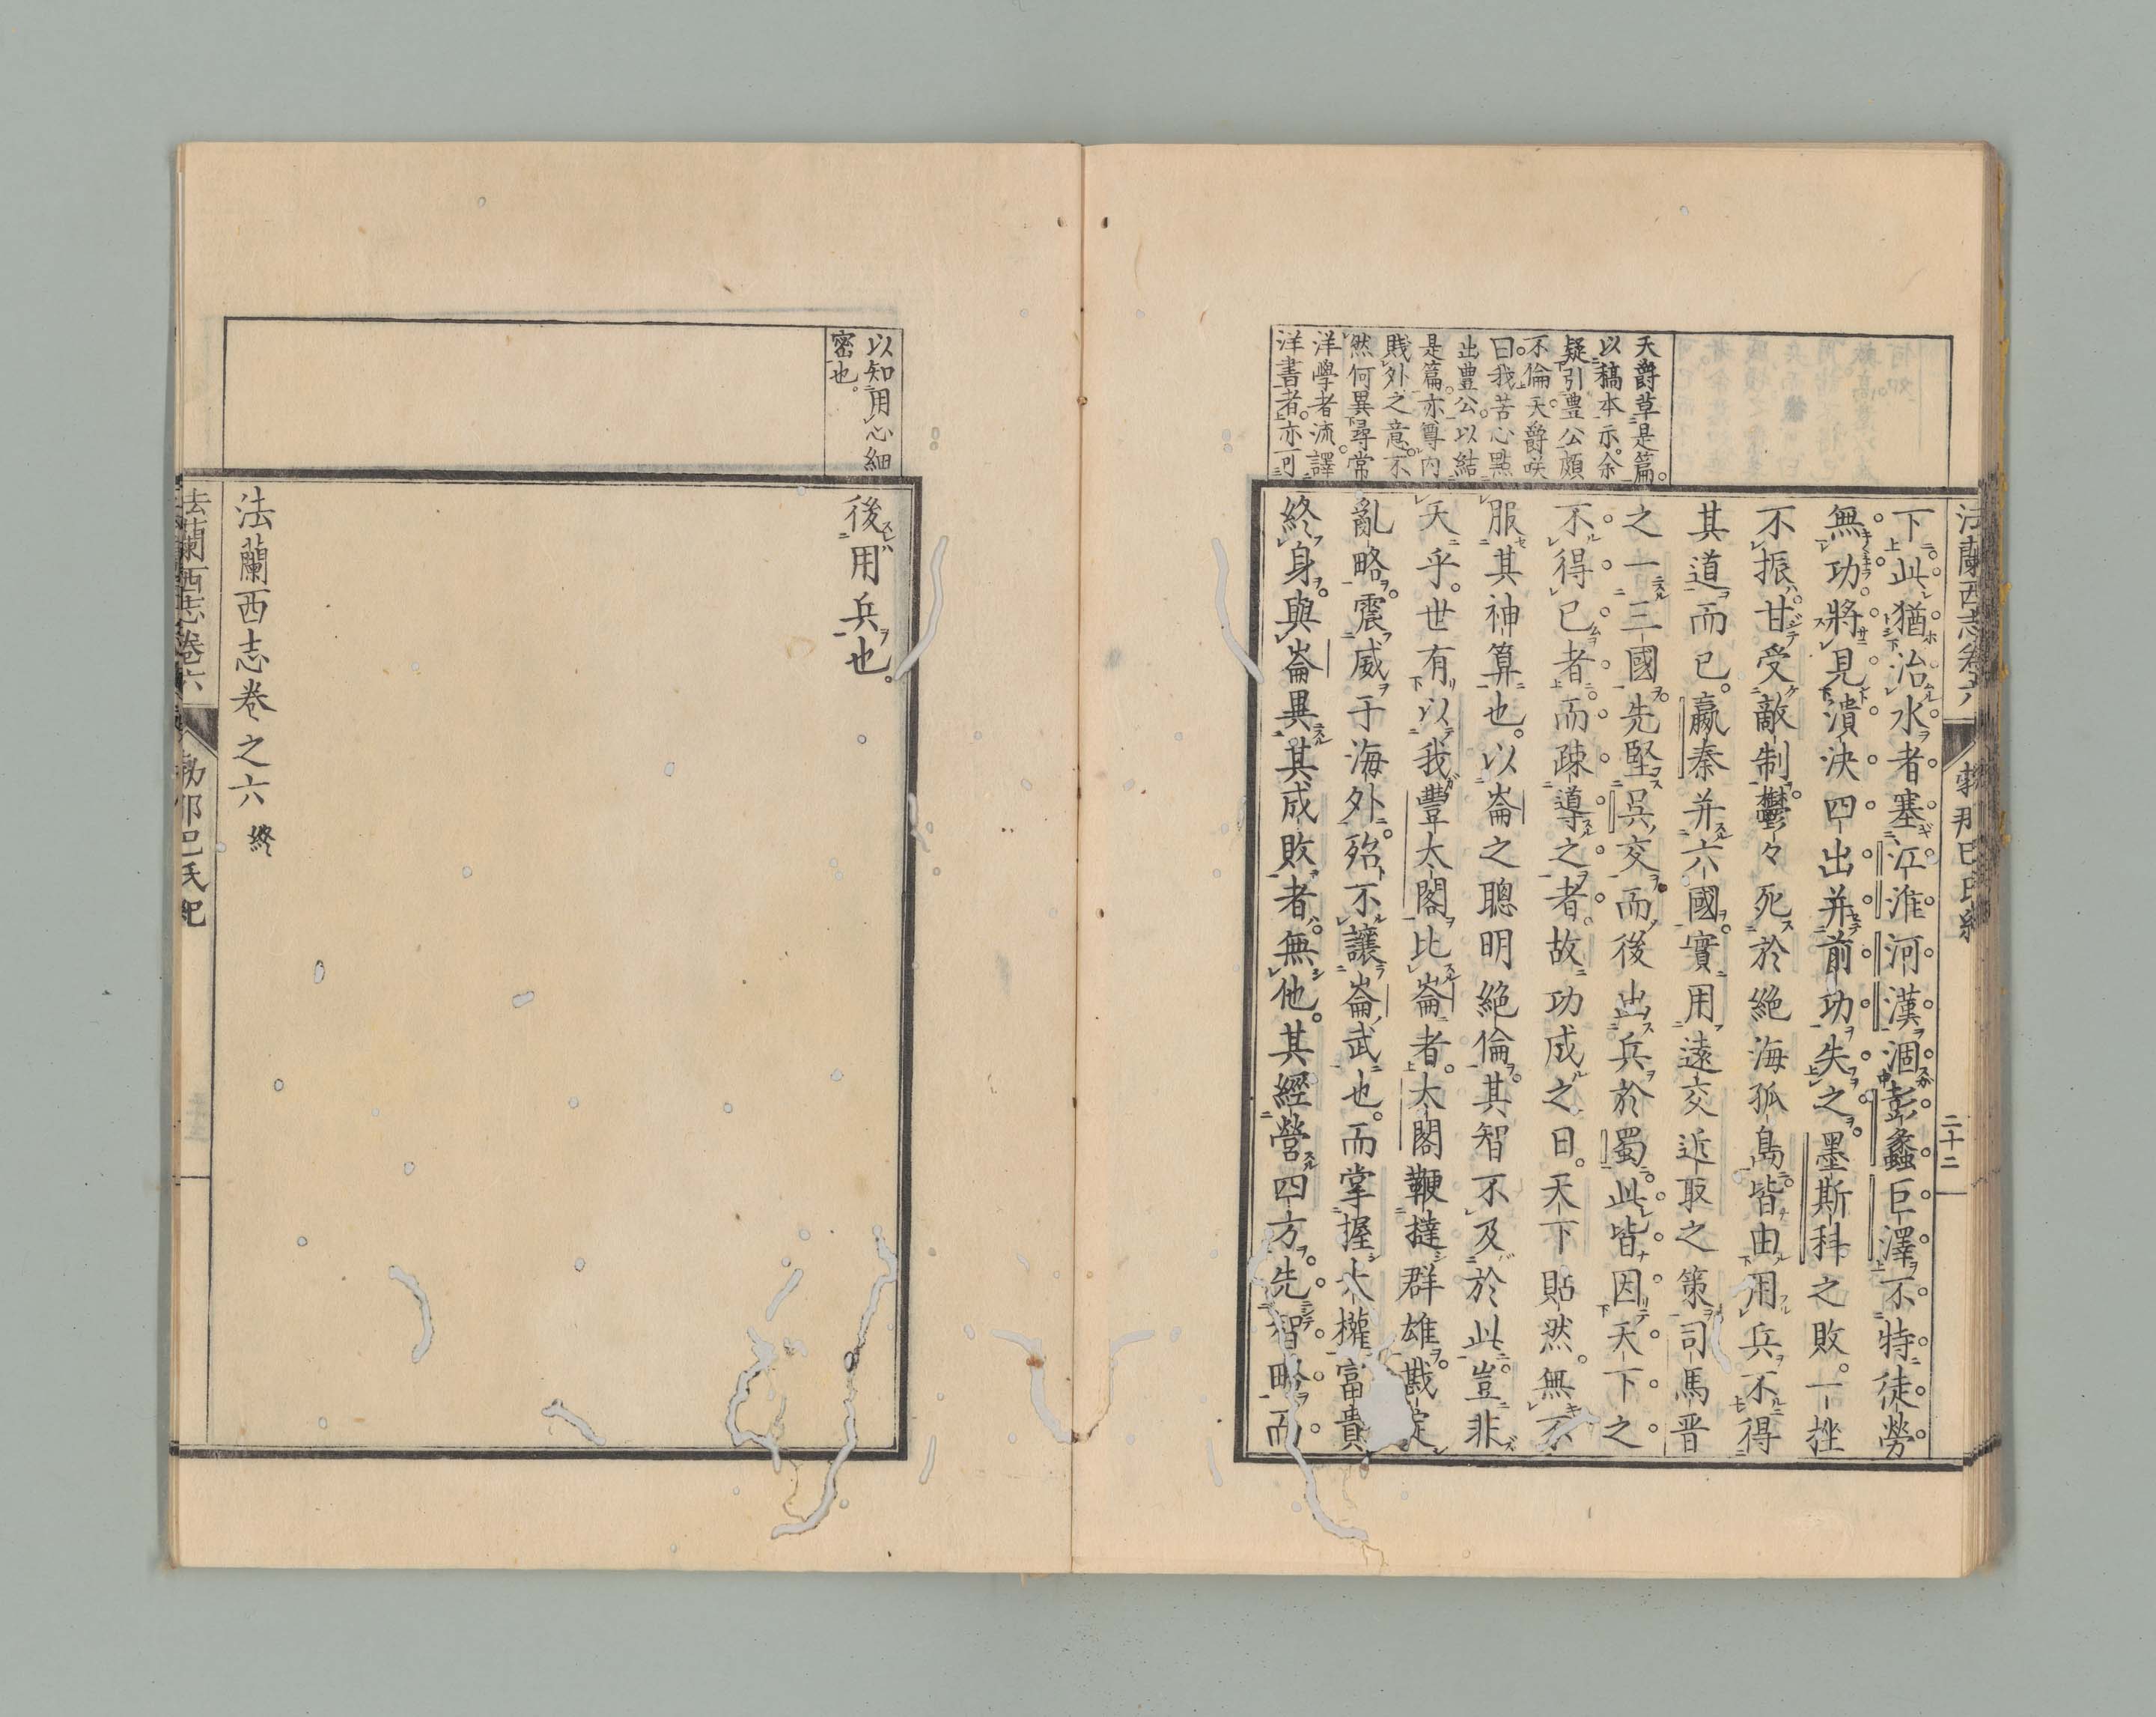 法蘭西志卷六
勃那巴氏紀
二十二
天爵草是篇。
以稿本示。余
疑引豊公頗
不倫。天爵咲
曰。我苦心點
出豊公。以結
是篇。亦尊内
賤外之意。不
然何異尋常
洋學者流。譯
洋書者。亦可
下。此猶治水者塞江淮河漢涸彭蠡巨澤不特徒勞
無功。將見潰決四出并前功失之。墨斯科之敗。一挫
不振。甘受敵制。鬱々死於絶海孤島。皆由用兵不得
其道而已。嬴秦并六國。實用遠交近取之策。司馬晋
之一三國。先堅呉交。而後出兵於蜀。此皆因天下之
不得已者。而疎導之者。故功成之日。天下貼然。無不
服其神算也。以崙之聰明絶倫。其智不及於此。豈非
天乎。世有以我豐太閤比崙者。太閤鞭撻群雄。戡定
亂略。震威于海外。殆不讓崙武也。而掌握大權。富貴
終身。與崙異其成敗者。無他。其經營四方。先智略而
以知用心細
密也。
後用兵也。
法蘭西志卷之六 終
法蘭西志卷六
勃那巴氏紀